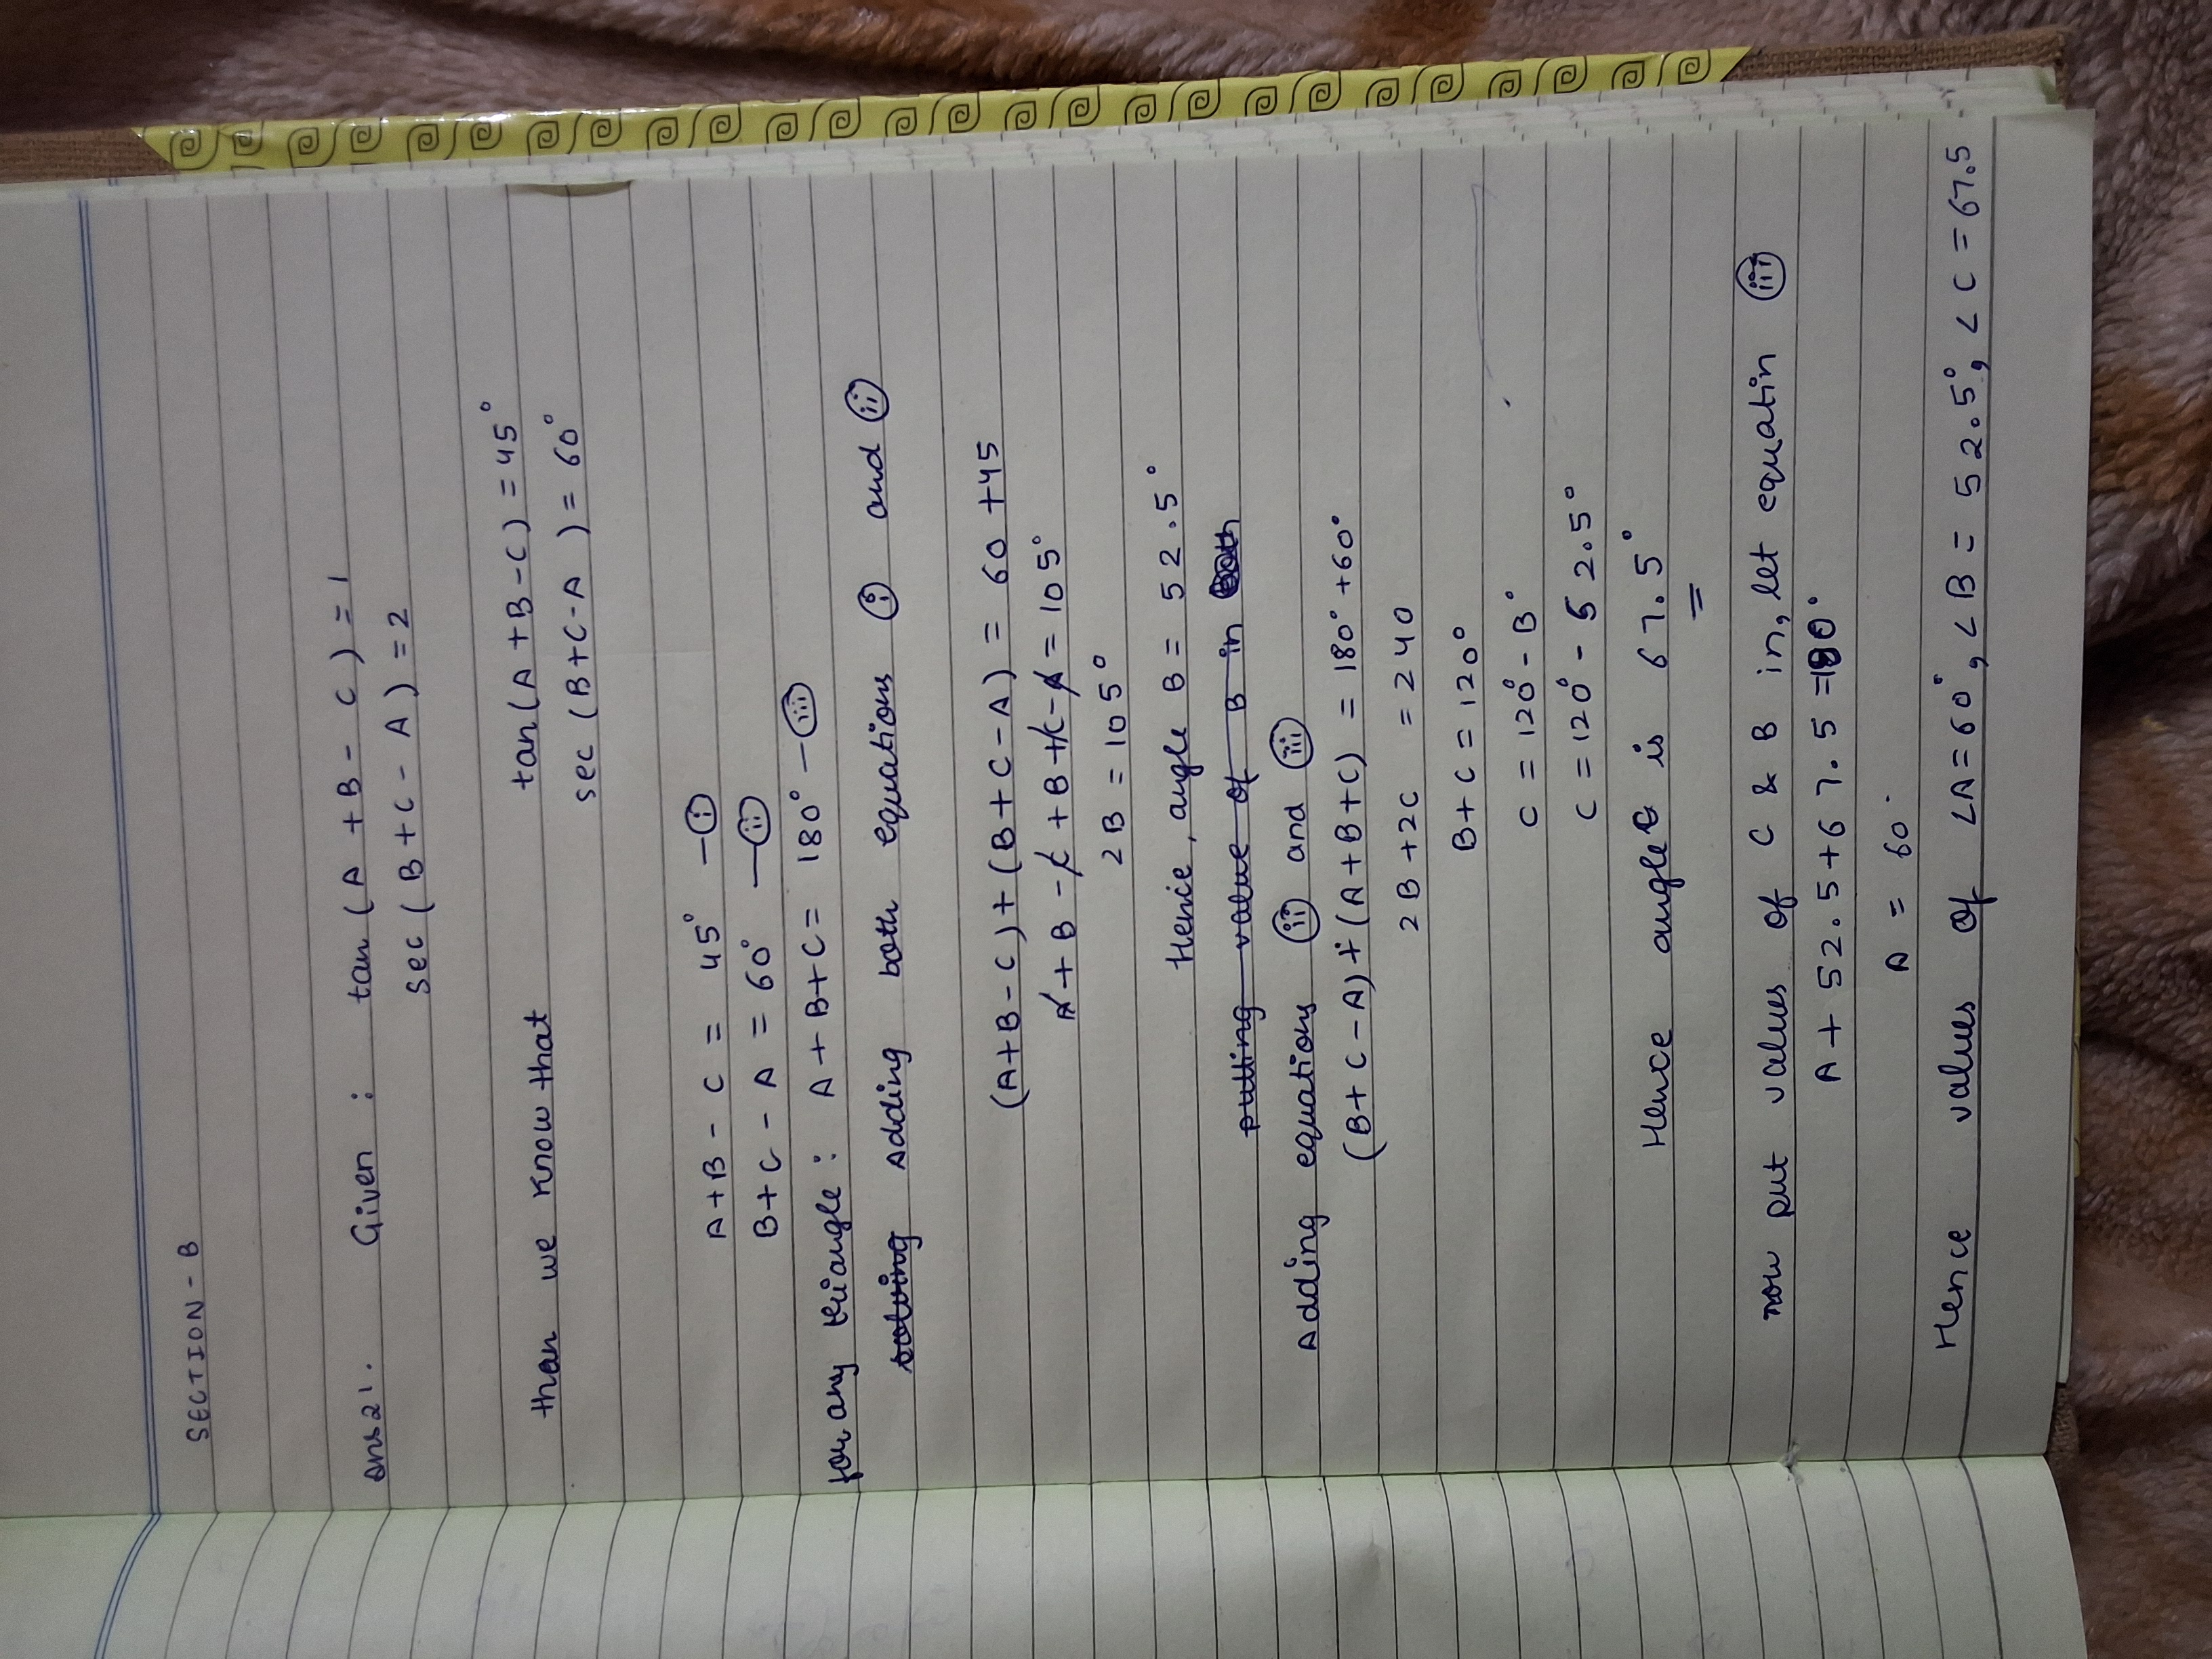 SECTION-B
ans21. Given : tan(A+B-C)=1
sec(B+C-A)=2
than we know that tan(A+B-C)=45°
sec(B+C-A)=60°
A+B-C = 45° -(i)
B+C-A = 60° -(ii)
for any triangle: A+B+C= 180° -(iii)
solving Adding both equations (i) and (ii)
(A+B-C)+(B+C-A)= 60+45
A+B-C+B+C-A=105°
2B=105°
Hence, angle B= 52.5°
putting value of B in
Adding equations (ii) and (iii)
(B+C-A)+(A+B+C) = 180°+60°
2B+2C = 240
B+C=120°
C = 120°-B°
C = 120°-52.5°
Hence angle C is 67.5°
=
now put values of C & B in, let equatin (iii)
A+52.5+67.5=180°
A = 60.
Hence values of ∠A=60°, ∠B= 52.5°, ∠C=67.5